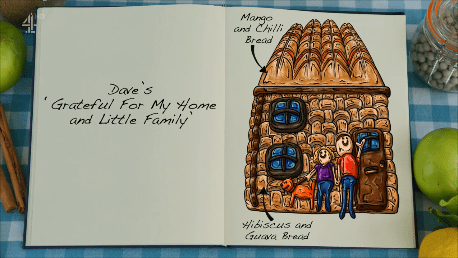 4
Dave's
'Grateful For My Home
and Little Family'
Mango
and Chilli
Bread
Hibiscus and
Guava Bread